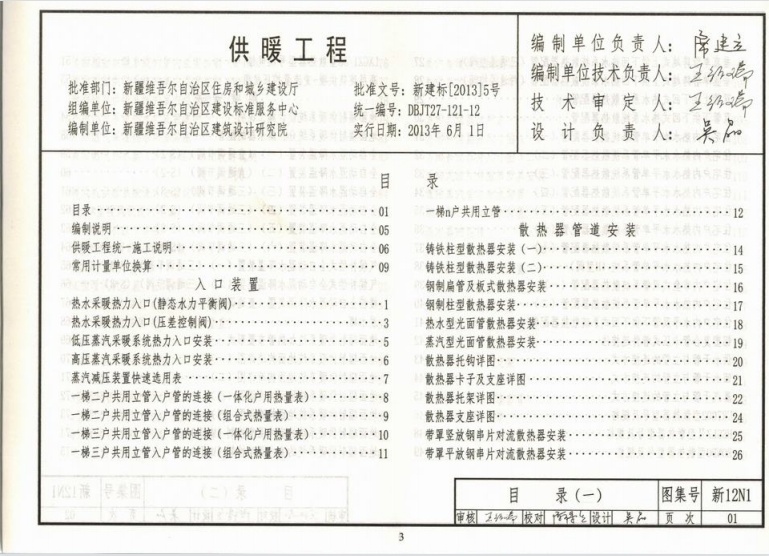 供暖工程
批准部门：新疆维吾尔自治区住房和城乡建设厅
组编单位：新疆维吾尔自治区建设标准服务中心
编制单位：新疆维吾尔自治区建筑设计研究院
批准文号：新建标[2013]5号
统一编号：DBJT27-121-12
实行日期：2013年 6月 1日
编制单位负责人：
编制单位技术负责人：
技术审定人：
设计负责人：
目 录
目录 01
编制说明 05
供暖工程统一施工说明 06
常用计量单位换算 09
入口装置
热水采暖热力入口(静态水力平衡阀) 1
热水采暖热力入口(压差控制阀) 3
低压蒸汽采暖系统热力入口安装 5
高压蒸汽采暖系统热力入口安装 6
蒸汽减压装置快速选用表 7
一梯二户共用立管入户管的连接(一体化户用热量表) 8
一梯二户共用立管入户管的连接(组合式热量表) 9
一梯三户共用立管入户管的连接(一体化户用热量表) 10
一梯三户共用立管入户管的连接(组合式热量表) 11
一梯n户共用立管 12
散热器管道安装
铸铁柱型散热器安装(一) 14
铸铁柱型散热器安装(二) 15
钢制扁管及板式散热器安装 16
钢制柱型散热器安装 17
热水型光面管散热器安装 18
蒸汽型光面管散热器安装 19
散热器托钩详图 20
散热器卡子及支座详图 21
散热器托架详图 22
散热器支座详图 24
带罩竖放钢串片对流散热器安装 25
带罩平放钢串片对流散热器安装 26
目 录(一) 图集号 新12N1
审核 校对 设计 页次 01
3